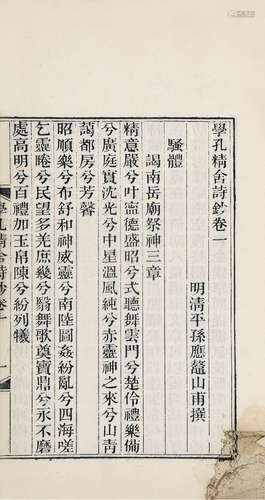 學孔精舍詩鈔卷一
明清平孫應鼇山甫撰
騷體
謁南岳廟祭神三章
精意嚴兮叶寧德盛昭兮式聽舞雲門兮楚伶禮樂備
兮廣庭實沈光兮中星溫風純兮赤靈神之來兮山青
藹都房兮芳馨
昭順樂兮布舒和神威靈兮南陸圖姦紛亂兮四海嗟
乞靈晻兮民望多羌庶幾兮翳舞歌奠寶鼎兮永不磨
處高明兮百禮加玉帛陳兮紛列犧
學孔精舍詩鈔卷一
一